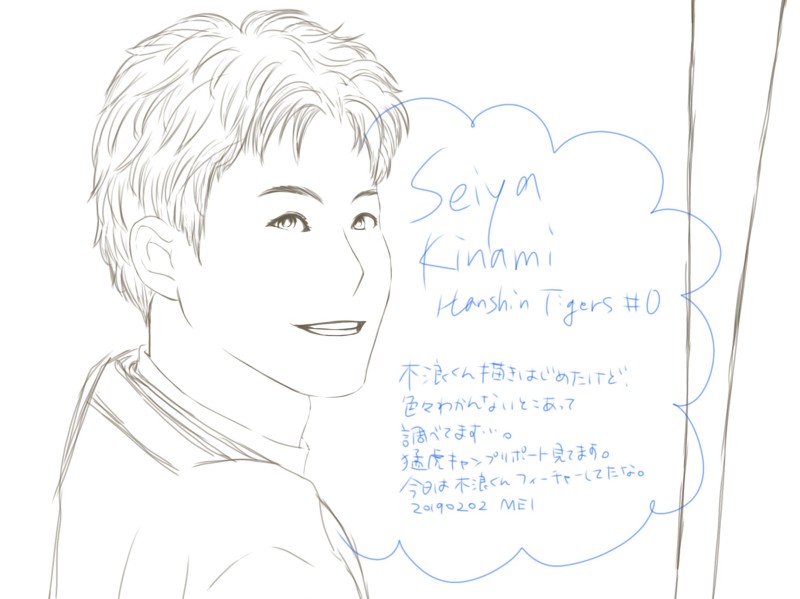 Seiya
Kinami
Hanshin Tigers #0
木浪くん描きはじめたけど、
色々わかんないとこあって
調べてます…。
猛虎キャンプリポート見てます。
今日は木浪くんフィーチャーしてたな。
20190202 MEI